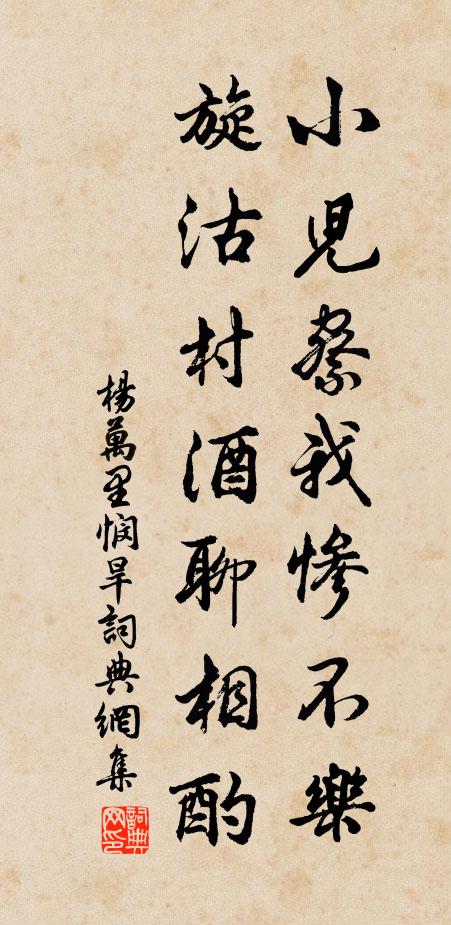 小兒察我慘不樂
旋沽村酒聊相酌
楊萬里憫旱詞典網集
詞典
网印